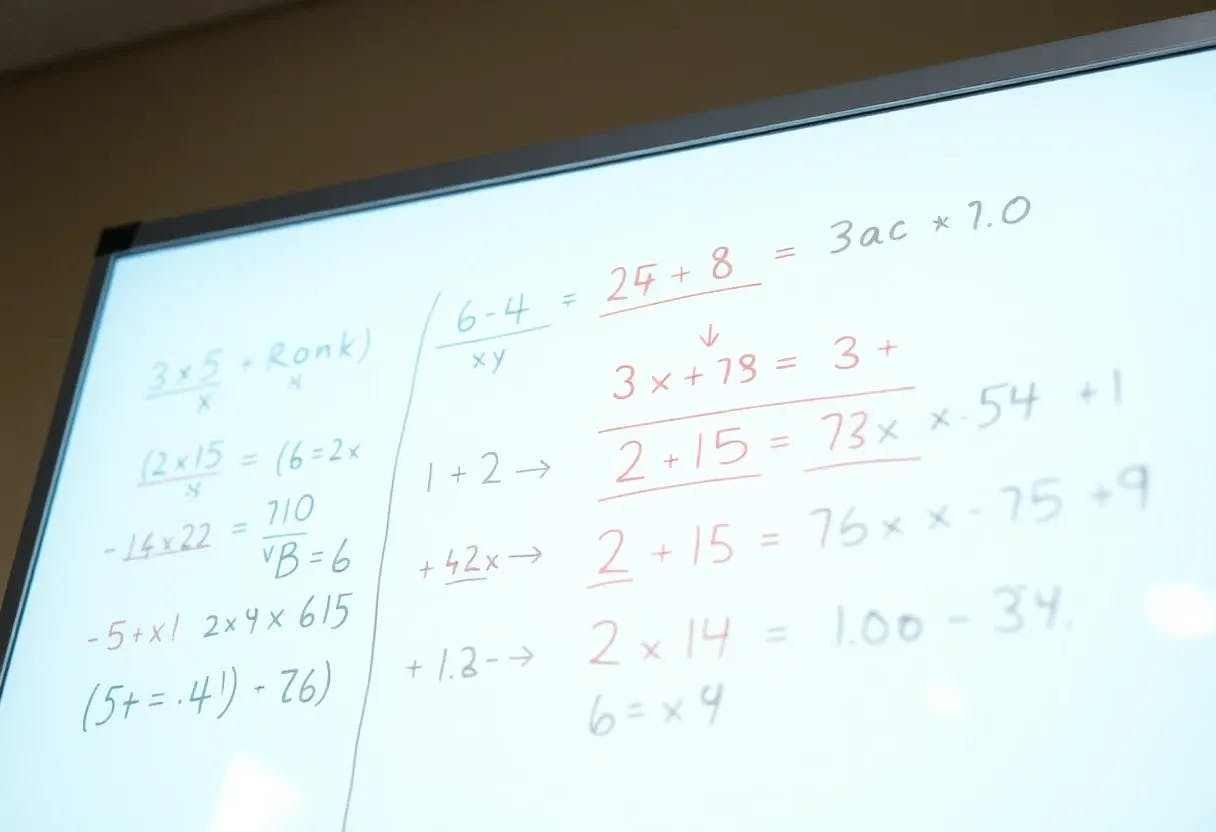 3 × 5 + Ronk)
x x
(2 × 15 = (6 = 2x
x
- 14 × 22 = 710
vB = 6
- 5 + x! 2 × 4 × 615
(5+ = .4') - 76)
6 - 4 = 24 + 8 = 3ac * 7.0
xy
↓
3 x + 78 = 3 +
1 + 2 → 2 + 15 = 73x × . 54 + 1
+ 42x → 2 + 15 = 76x × - 75 + 9
+ 1.3 - → 2 × 14 = 1.00 - 34.
6 = × 4